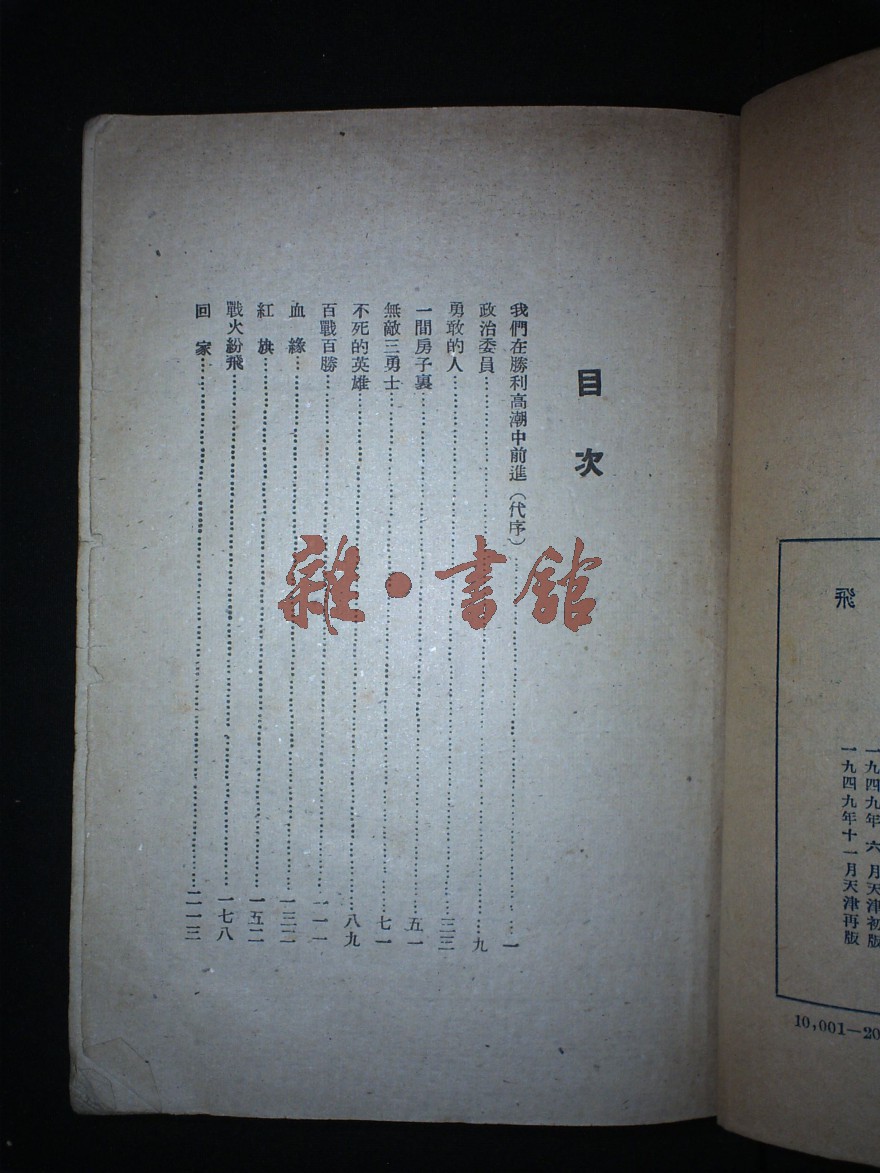 目次
我們在勝利高潮中前進（代序）……一
政治委員……九
勇敢的人……三三
一間房子裏……五一
無敵三勇士……七一
不死的英雄……八九
百戰百勝……一一一
血緣……一三二
紅旗……一五二
戰火紛飛……一七八
回家……二一三
雜·書館
飛
一九四九年六月天津初版
一九四九年十一月天津再版
10,001—20